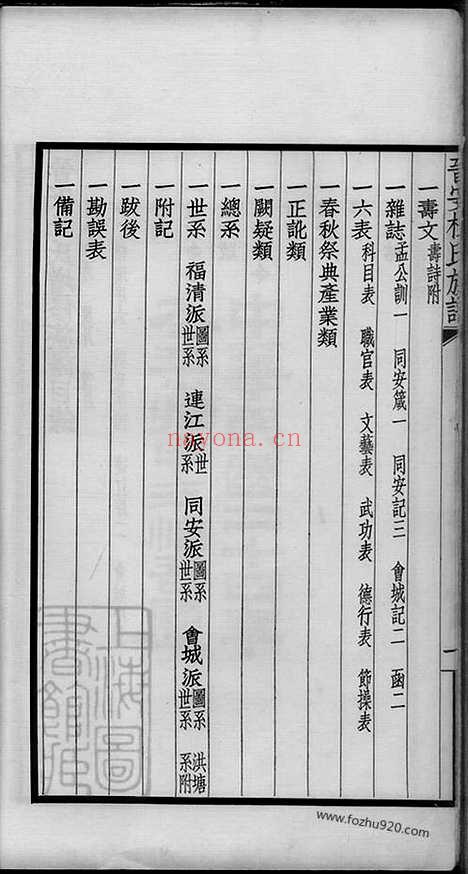 晉安杜氏族譜
一
一壽文 壽詩附
一雜誌 孟公訓一 同安箴一 同安記三 會城記二 函二
一六表 科目表 職官表 文藝表 武功表 德行表 節操表
一春秋祭典產業類
一正訛類
一闕疑類
一總系
一世系 福清派 圖系 世系 連江派 世系 同安派 圖系 世系 會城派 圖系 世系 洪塘系附
一附記
一跋後
一勘誤表
一備記
上海圖書館藏
nayona.cn
www.fozhu920.com